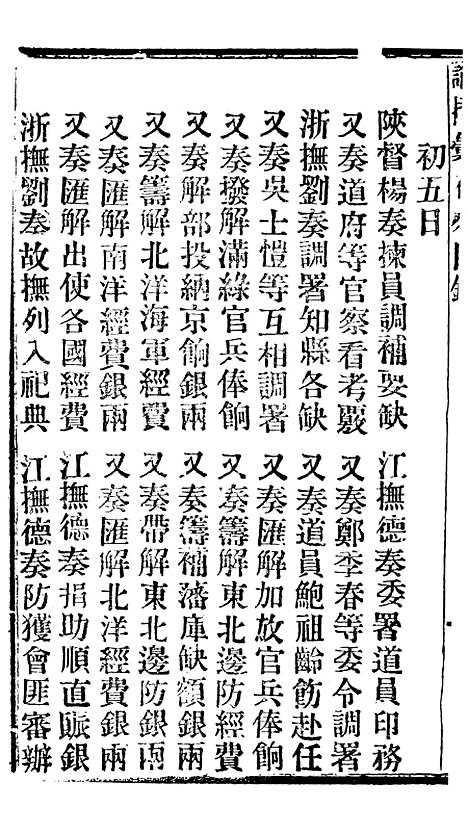 初五日
陝督楊奏揀員調補要缺 江撫德奏委署道員印務
又奏道府等官察看考覈 又奏鄭季春等委令調署
浙撫劉奏調署知縣各缺 又奏道員鮑祖齡飭赴任
又奏吳士愷等互相調署 又奏匯解加放官兵俸餉
又奏撥解滿綠官兵俸餉 又奏籌解東北邊防經費
又奏解部投納京餉銀兩 又奏籌補藩庫缺額銀兩
又奏籌解北洋海軍經費 又奏帶解東北邊防銀兩
又奏匯解南洋經費銀兩 又奏匯解北洋經費銀兩
又奏匯解出使各國經費 江撫德奏捐助順直賑銀
浙撫劉奏故撫列入祀典 江撫德奏防獲會匪審辦